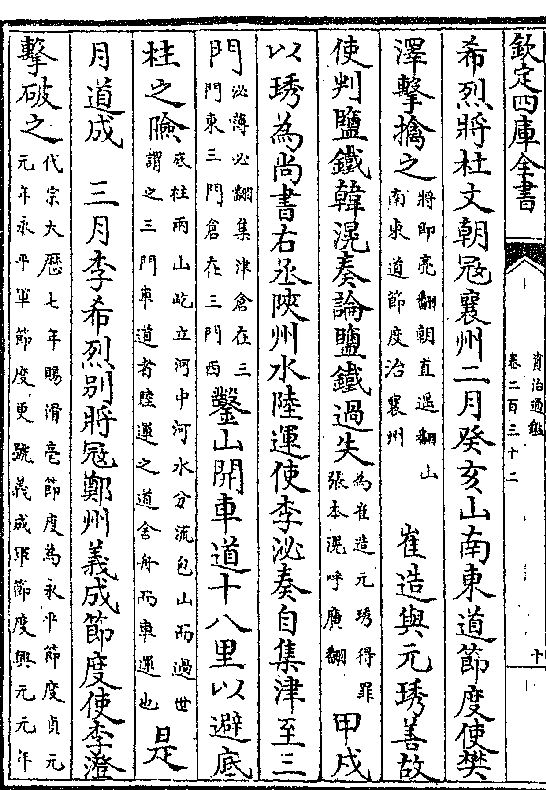 欽定四庫全書
資治通鑑
卷二百三十二
十
希烈將杜文朝冦襄州二月癸亥山南東道節度使樊
澤擊擒之
將即亮翻朝直遥翻山
南東道節度治襄州
崔造與元琇善故
使判鹽鐵韓滉奏論鹽鐵過失
為崔造元琇得罪
張本滉呼廣翻
甲戌
以琇為尚書右丞陜州水陸運使李泌奏自集津至三
門
泌薄必翻集津倉在三
門東三門倉在三門西
鑿山開車道十八里以避底
柱之險
底柱兩山屹立河中河水分流包山而過世
謂之三門車道者陸運之道舍舟而車運也
是
月道成　三月李希烈别將冦鄭州義成節度使李澄
擊破之
代宗大厯七年賜滑亳節度為永平節度貞元
元年永平軍節度更號義成軍節度興元元年